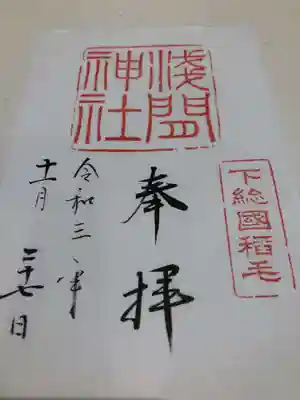 淺間
神社
下総國稻毛
奉拝
令和三年
十一月
二十七日